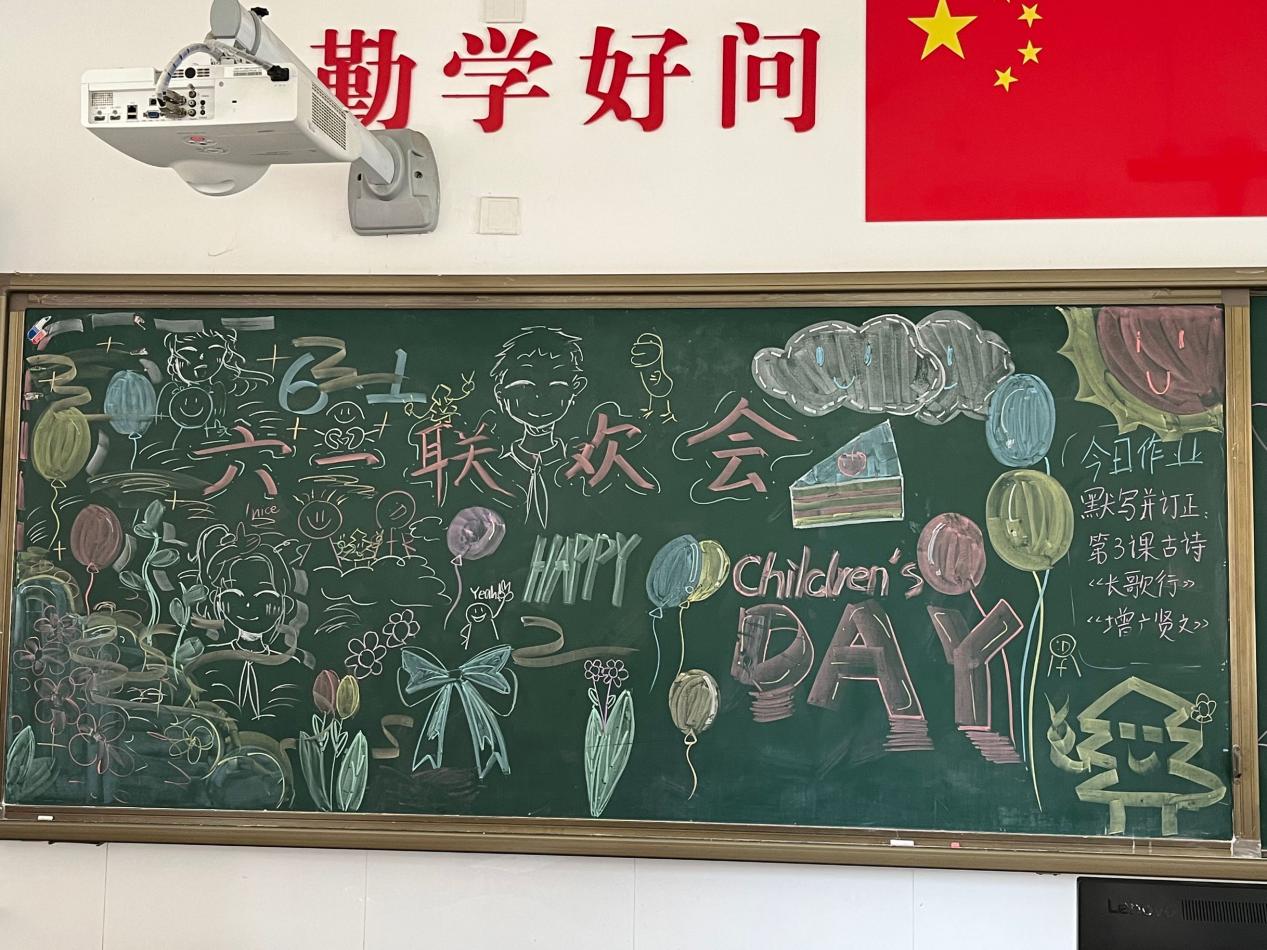 勤学好问
6-1
六一联欢会
nice
Yeah!
HAPPY
Children's
DAY
今日作业
默写并订正:
第3课古诗
《长歌行》
《增广贤文》
Lenovo